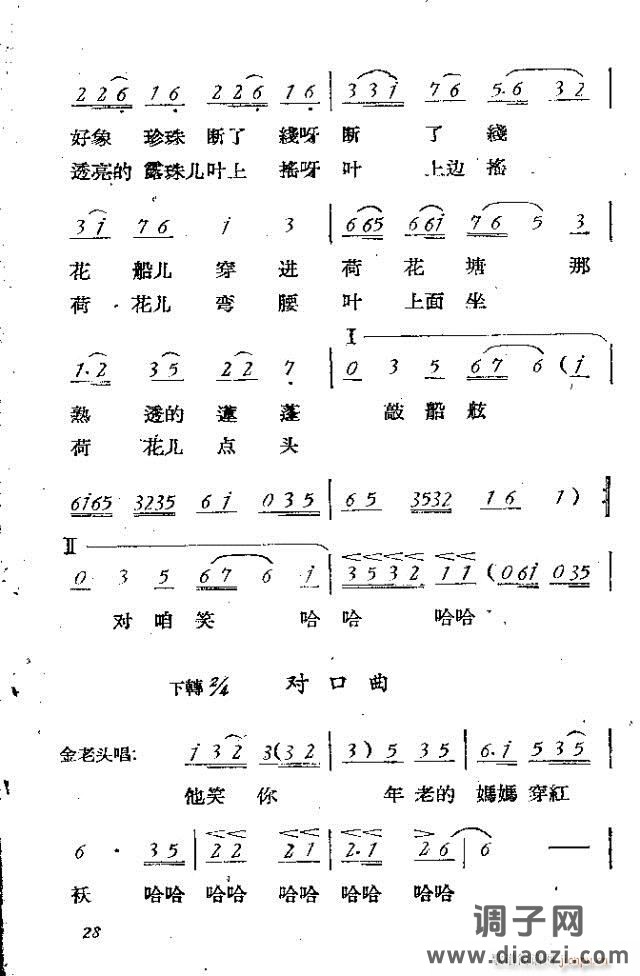 2 2 6 1 6 2 2 6 1 6 | 3 3 i 7 6 5·6 3 2 |
好象 珍珠 断了 綫呀 断 了 綫
透亮的 露珠儿叶上 搖呀 叶 上边 搖
3 i 7 6 i 3 | 6 65 6 6i 7 6 5 3
花 船儿 穿 进 荷 花 塘 那
荷 花儿 弯 腰 叶 上面 坐
I
1·2 3 5 2 2 7 | 0 3 5 6 7 6 ( i |
熟 透的 莲 蓬 敲 船 舷
荷 花儿 点 头
6i65 3235 6 i 0 3 5 | 6 5 3532 1 6 1 )
II
0 3 5 6 7 6 i | 3 5 3 2 1 1 ( 0 6i 0 35
对 咱 笑 哈 哈 哈哈
下轉 2/4 对 口 曲
金老头唱: i 3 2 3 ( 3 2 | 3 ) 5 3 5 | 6· i 5 3 5 |
他笑 你 年 老的 媽媽 穿紅
6 · 3 5 | 2 2 2 1 | 2· 1 2 6 | 6 — |
袄 哈哈 哈哈 哈哈 哈哈 哈哈
28
调子网
www.diaozi.com